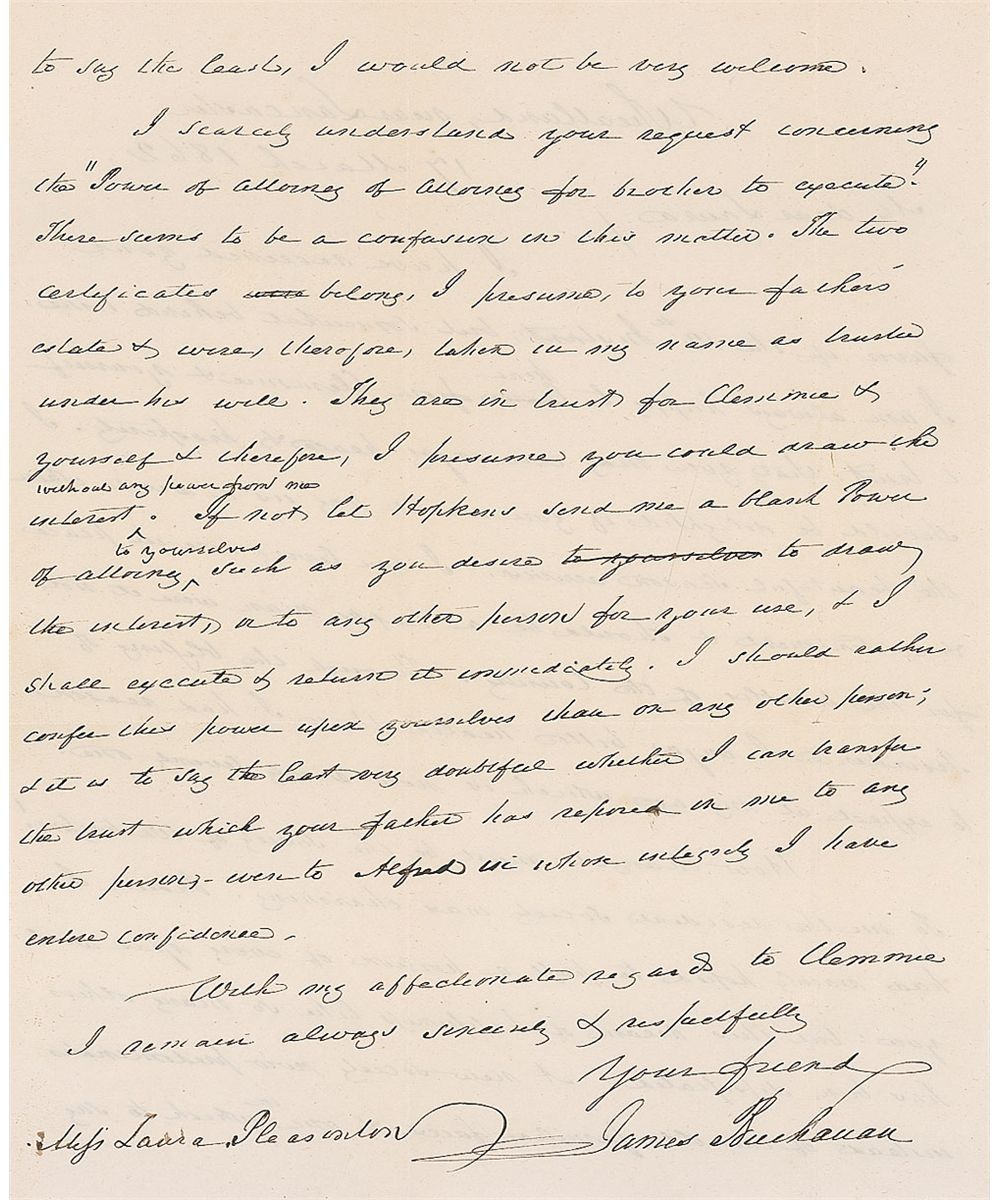 to say the least, I would not be very welcome.
I scarcely understand your request concerning
the "Power of attorney of attorney for brother to execute".
There seems to be a confusion in this matter. The two
certificates were belong, I presume, to your father's
estate & were, therefore, taken in my name as trustee
under his will. They are in trust for Clemmie &
yourself & therefore, I presume you could draw the
without any power from me
interest. If not let Hopkins send me a blank Power
to yourselves
of attorney, such as you desire to yourselves to draw
the interest, or to any other person for your use, & I
shall execute & return it immediately. I should rather
confer this power upon yourselves than on any other person;
& it is to say the least very doubtful whether I can transfer
the trust which your father has reposed in me to any
other person,- even to Alfred in whose integrity I have
entire confidence.
With my affectionate regards to Clemmie
I remain always sincerely & respectfully
Your friend
James Buchanan
Miss Laura Pleasonton